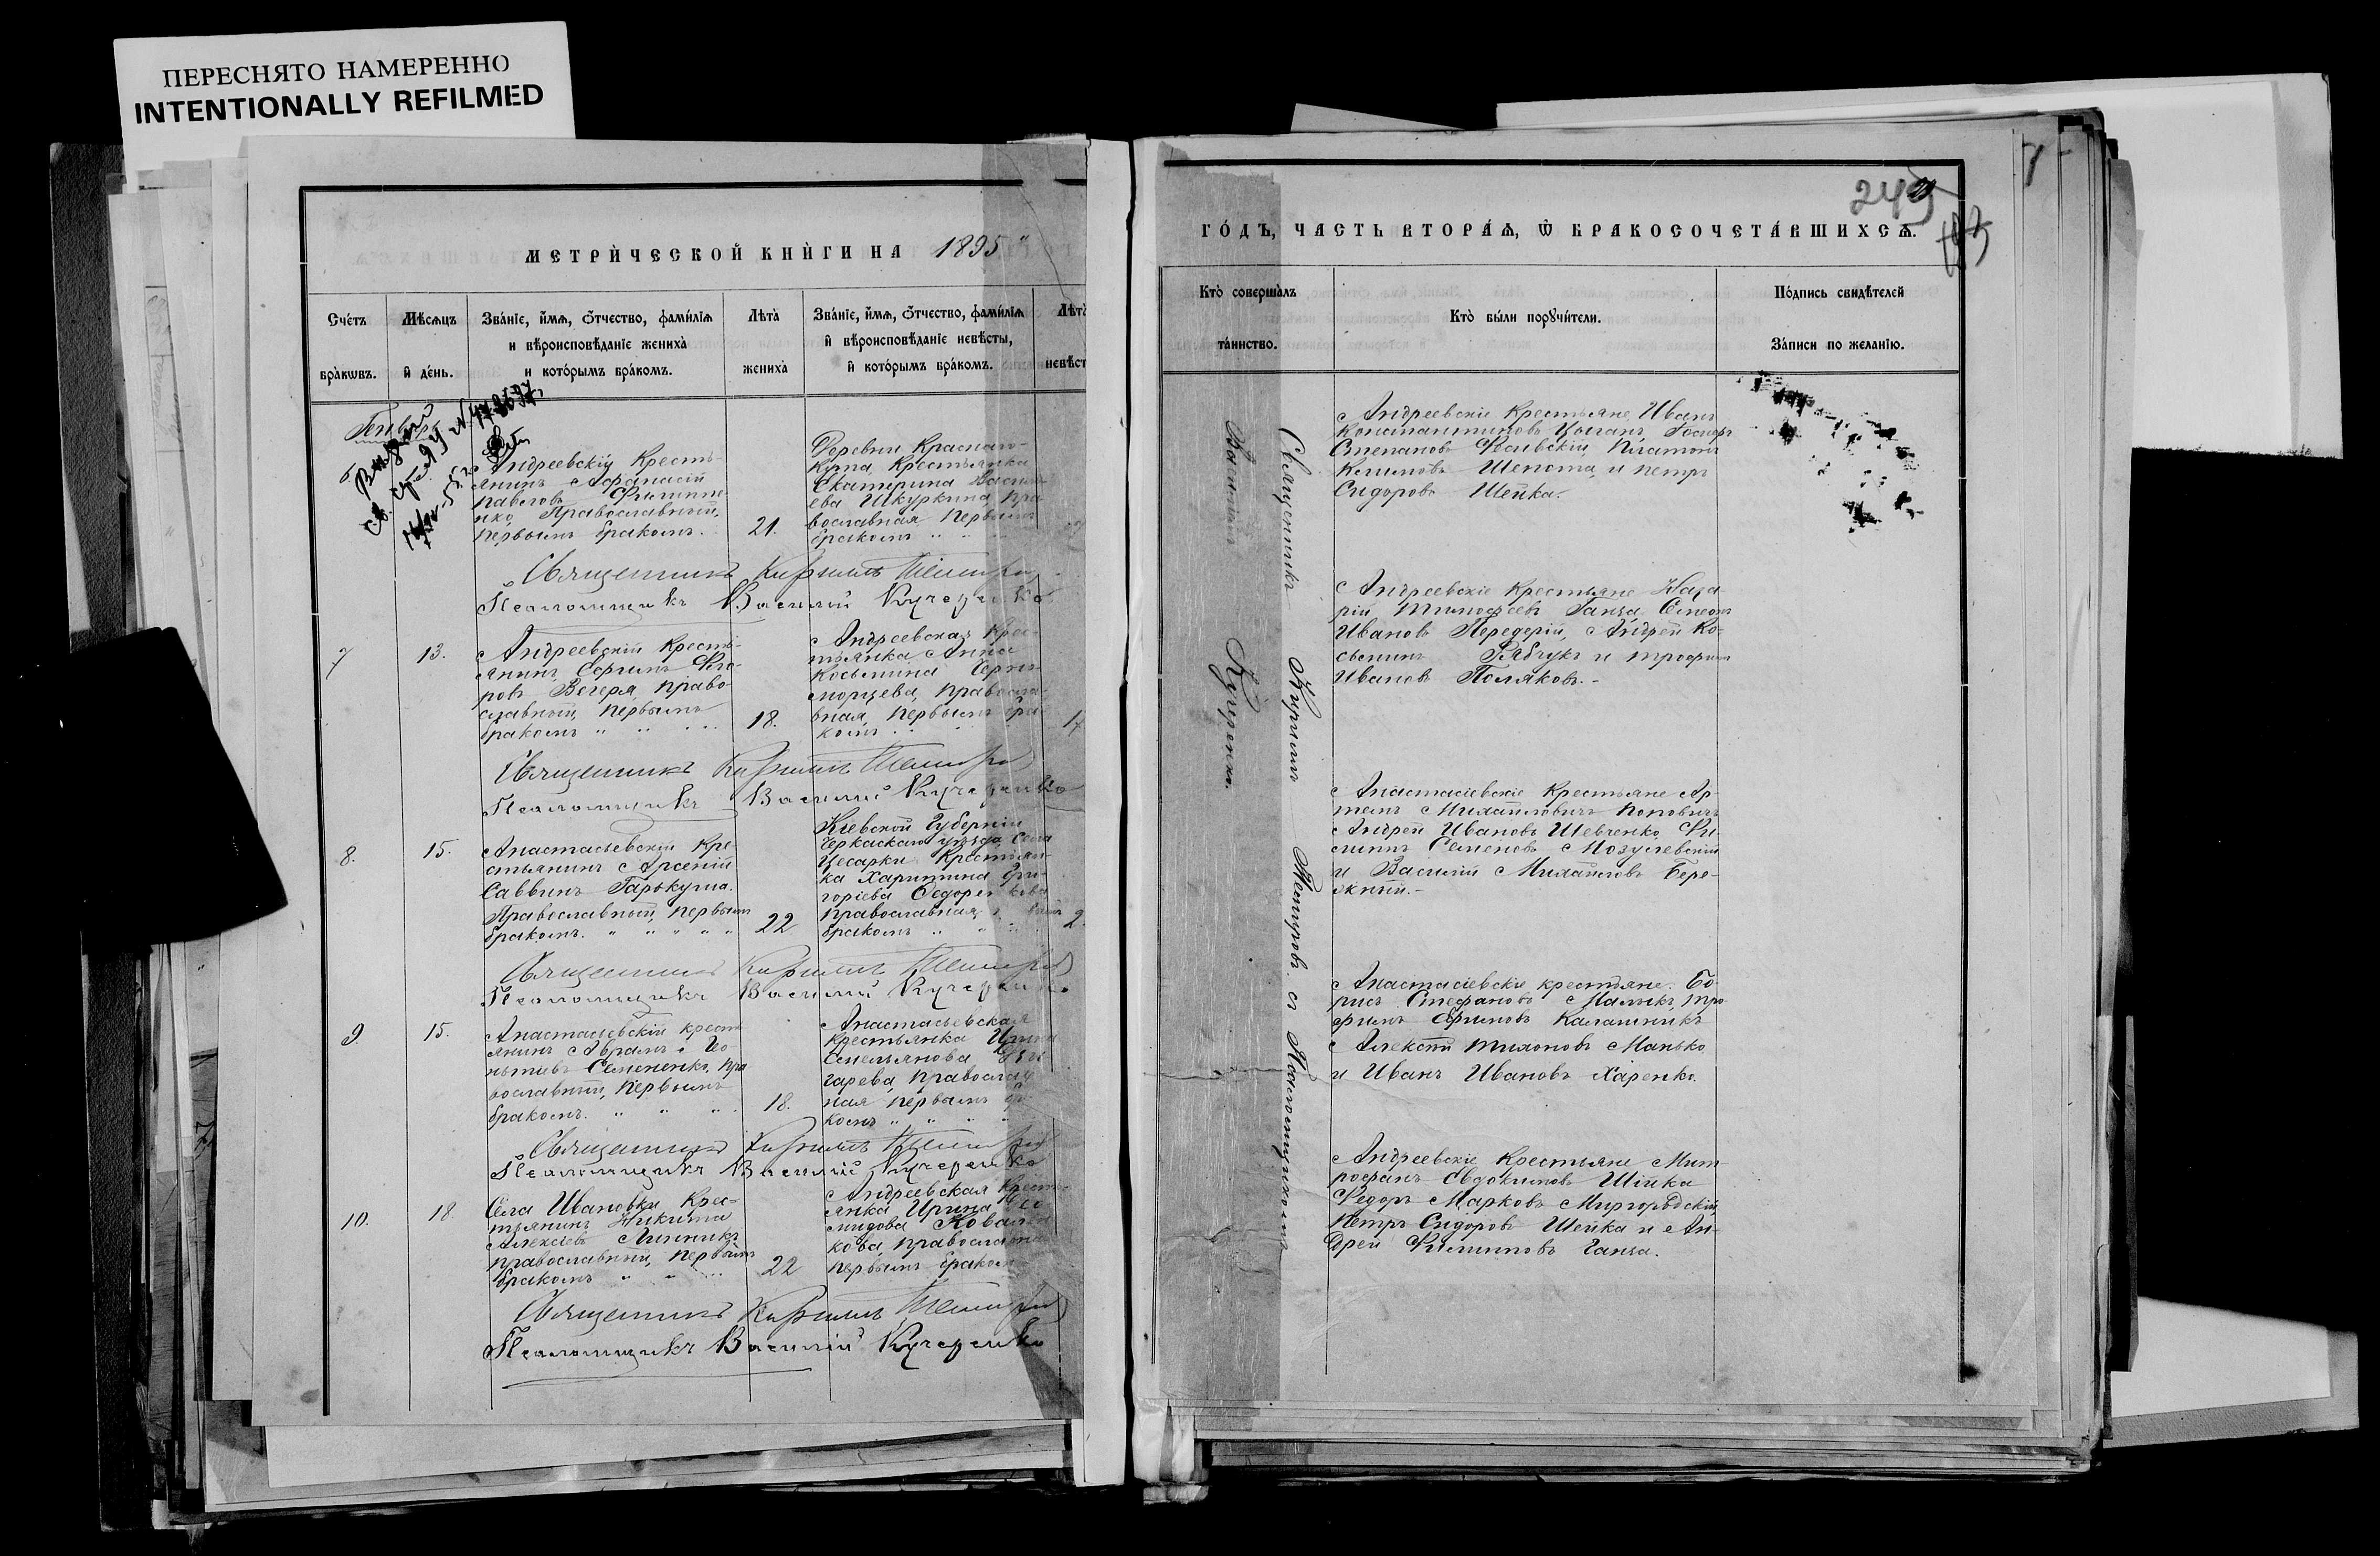 ПЕРЕСНЯТО НАМЕРЕННО
INTENTIONALLY REFILMED
МЕТРИ́ЧЕСКОЙ КНИ́ГИ НА 1895
Сче́тъ
бра́кѡвъ.
Мѣ́сѧцъ
и҆ де́нь.
Зва́нїе, и҆́мѧ, ѻ҆́тчество, фами́лїѧ
и вѣроисповѣ́данїе жениха̀
и кото́рымъ бра́комъ.
Лѣта̀
жениха̀
Зва́нїе, и҆́мѧ, ѻ҆́тчество, фами́лїѧ
и҆ вѣроисповѣ́данїе невѣ́сты,
и҆ кото́рымъ бра́комъ.
Лѣта̀
невѣст
Генварь
6
Андреевскій Кресть-
янинъ Афанасій
Павловъ Филиппе-
нко, Православный,
первымъ бракомъ.
21.
Деревни Красная-
Крестьянка
Екатерина Васил
ева Шкуркина пра
вославная первымъ
бракомъ
Священникъ Кириллъ
Псаломщикъ Василій Кучеренко
7
13.
Андреевскій Кресть-
янинъ Ефимъ
Вечеря, право-
славный, первымъ
бракомъ
18.
Андреевская Крес-
тьянка Анна
Косьмина Черно-
морцева, правосла-
вная, первымъ бра
комъ
17
Священникъ Кириллъ
Псаломщикъ Василій Кучеренко
8.
15.
Анастасьевскій Кре-
стьянинъ Арсеній
Саввинъ Гаркуша.
Православный, первымъ
бракомъ.
22
Кіевской Губерніи
Черкаскаго уѣзда, Села
Цесарки Крестьян-
ка Харитина Гри-
горіева Федоренкова
православная,
бракомъ
2
Священникъ Кириллъ
Псаломщикъ Василій Кучеренко
9.
15.
Анастасьевскій крест
янинъ Аврамъ Іо-
Семененко, пра
вославный, первымъ
бракомъ.
18.
Анастасьевская
крестьянка Ирина
Емельянова
гарева, православ
ная первымъ бра
комъ
Священникъ Кириллъ
Псаломщикъ Василій Кучеренко
10.
18
Села Ивановки Крес-
тьянинъ Никита
Алексіевъ Линникъ
православный, первымъ
бракомъ
22
Андреевская Кресть
янка Ирина
Ковален
кова, православная
первымъ бракомъ
Священникъ Кириллъ
Псаломщикъ Василій Кучеренко
ГО́ДЪ, ЧАСТЬ ВТОРА́Ѧ, Ѽ БРАКОСОЧЕТА́ВШИХСѦ.
Кто̀ соверша́лъ
та́инство.
Кто̀ бы́ли порꙋчи́тели.
По́дпись свидѣ́телей
За́писи по жела́нїю.
Священникъ Кириллъ съ Псаломщикомъ
Василіемъ Кучеренко.
Андреевскіе Крестьяне Иванъ
Константиновъ Цыганъ,
Степановъ Платонъ
Климовъ Шепота, и Петръ
Сидоровъ Шейка.
Андреевскіе Крестьяне Наза-
рій Тимофеевъ Ганза, Симеонъ
Ивановъ Передерій, Андрей Ко-
сьминъ Рябчукъ и Трофимъ
Ивановъ Поляковъ.-
Анастасіевскіе Крестьяне Ар-
темъ Михайловичъ Поповичъ
Андрей Ивановъ Шевченко, Фи-
липпъ Семеновъ Мозулевскій
и Василій Михайловъ Бере-
жный.-
Анастасіевскіе крестьяне. Бо-
рисъ Стефановъ Малыкъ, Тро-
фимъ Ефимовъ Калашникъ
Алексѣй Тихоновъ Манько
и Иванъ Ивановъ Харенко.
Андреевскіе Крестьяне Мит-
рофанъ Евдокимовъ Шійка
Федоръ Марковъ Миргородскій,
Петръ Сидоровъ Шейка и Ан-
дрей Филипповъ Ганза.